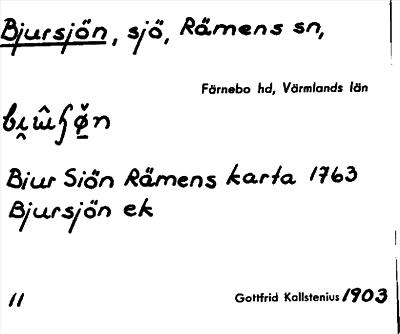 Bjursjön, sjö, Rämens sn,
Färnebo hd, Värmlands län
Biur Siön Rämens karta 1763
Bjursjön ek
11 Gottfrid Kallstenius 1903